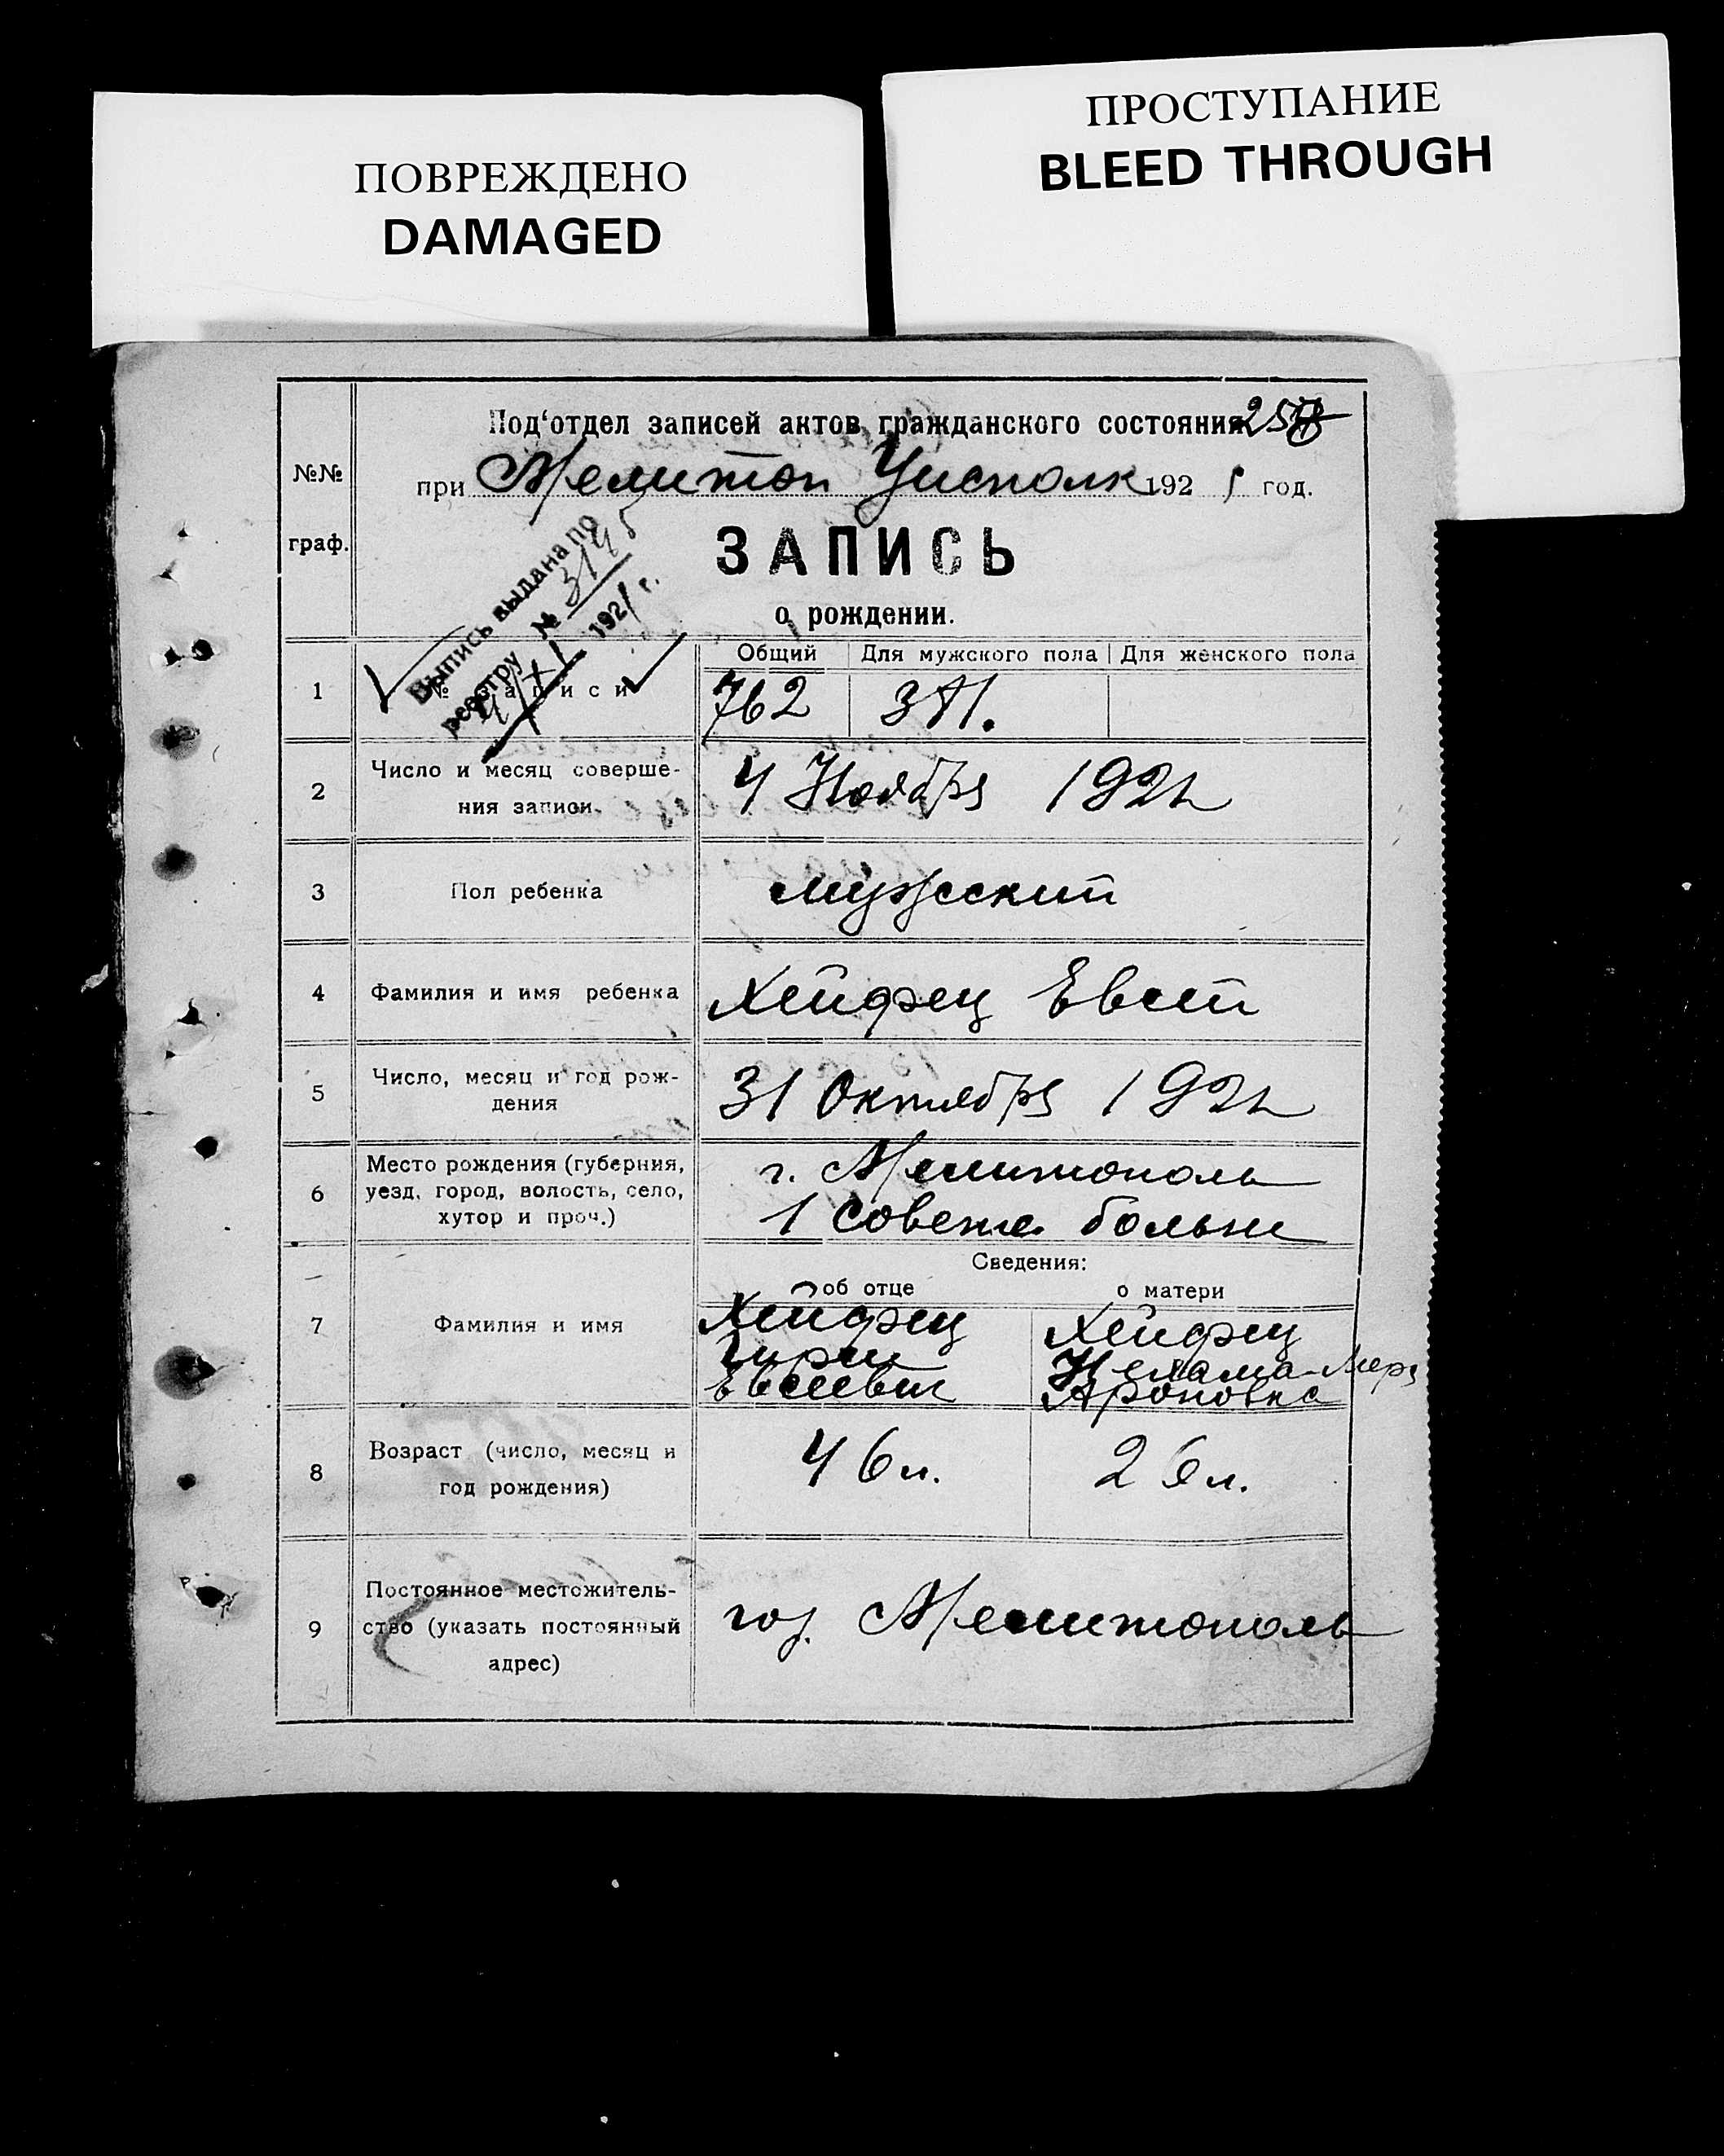 ПОВРЕЖДЕНО
DAMAGED
ПРОСТУПАНИЕ
BLEED THROUGH
Под'отдел записей актов гражданского состояния
№№
граф.
при Мелитоп Уисполк 192 1 год.
Выпись выдана по
реестру № 3195
4/XI 1921 г.
ЗАПИСЬ
о рождении.
Общий Для мужского пола Для женского пола
1 № записи 762 381.
2 Число и месяц соверше-
ния записи 4 Ноября 192
3 Пол ребенка мужский
4 Фамилия и имя ребенка Хейфец Евсей
5 Число, месяц и год рож-
дения 31 Октября 192
6 Место рождения (губерния,
уезд, город, волость, село,
хутор и проч.)
г. Мелитополь
1 Советс. больн
Сведения:
об отце о матери
7 Фамилия и имя
Хейфец
Евсеевич
Хейфец
Нехама-Мера
Ароновна
8 Возраст (число, месяц и
год рождения)
46 л. 26 л.
9 Постоянное местожитель-
ство (указать постоянный
адрес)
гор. Мелитополь